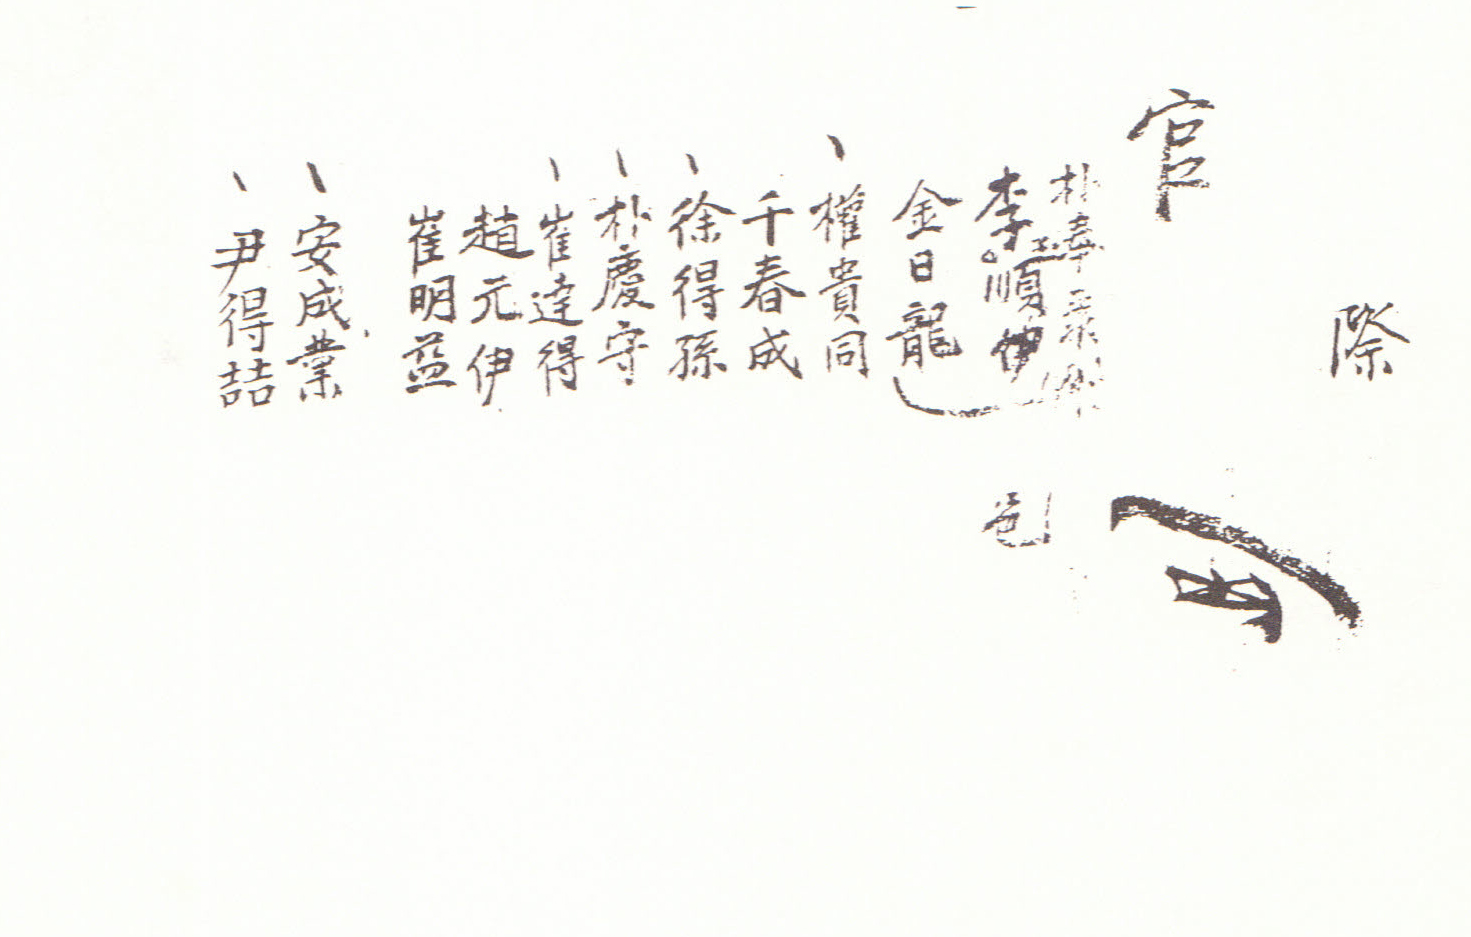 際
官
朴奉
李順伊
金日龍
權貴同
千春成
徐得孫
朴慶守
崔達得
趙元伊
崔明益
安成業
尹得喆